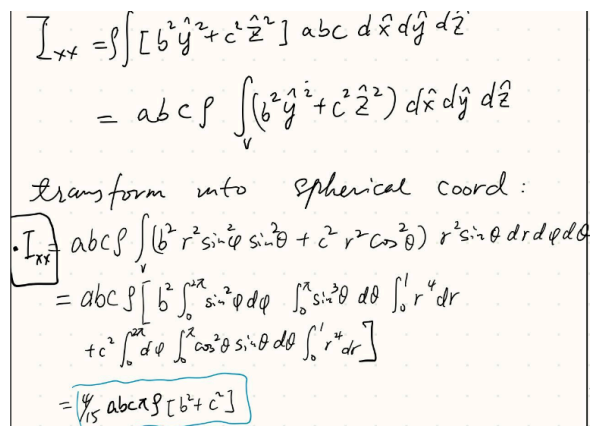 I_xx = ρ∫[b²ŷ² + c²ẑ²] abc dx̂ dŷ dẑ
= abcρ ∫_V (b²ŷ² + c²ẑ²) dx̂ dŷ dẑ
transform into spherical coord :
· I_xx = abcρ ∫_V (b² r² sin²φ sin²θ + c² r² cos²θ) r² sinθ dr dφ dθ
= abcρ [b² ∫₀^{2π} sin²φ dφ ∫₀^π sin³θ dθ ∫₀¹ r⁴ dr
+ c² ∫₀^{2π} dφ ∫₀^π cos²θ sinθ dθ ∫₀¹ r⁴ dr]
= 4/15 abcπρ [b² + c²]